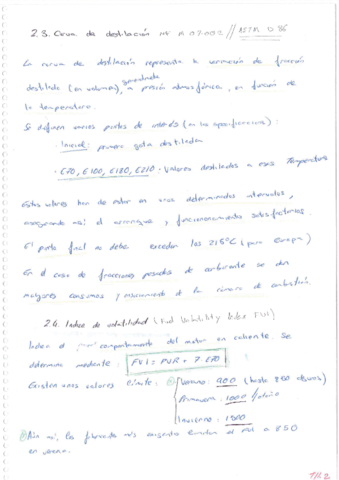 2.3. Curva de destilación NF M 07.002 // ASTM D 86
La curva de destilación representa la variación de fracción
destilada (en volumen), generalmente a presión atmosférica, en función de
la temperatura.
Se definen varios puntos de interés (en las especificaciones):
Inicial: primera gota destilada
· E70, E100, E180, E210: Valores destilados a esas Temperaturas
Estos valores han de estar en unos determinados intervalos,
asegurando así el arranque y funcionamiento satisfactorios.
El punto final no debe exceder los 215°C (para Europa)
En el caso de fracciones pesadas de carburante se dan
mayores consumos y ensuciamiento de la cámara de combustión.
2.4. Indice de volatilidad (Fuel Volatility Index FVI)
Indica el comportamiento del motor en caliente. Se
determina mediante: FVI = PVR + 7 E70
Existen unos valores límite: Verano: 900 (hasta 850 algunos)
Primavera: 1000 /otoño
Invierno: 1500
Aún así, los fabricantes más exigentes limitan el FVI a 850
en verano.